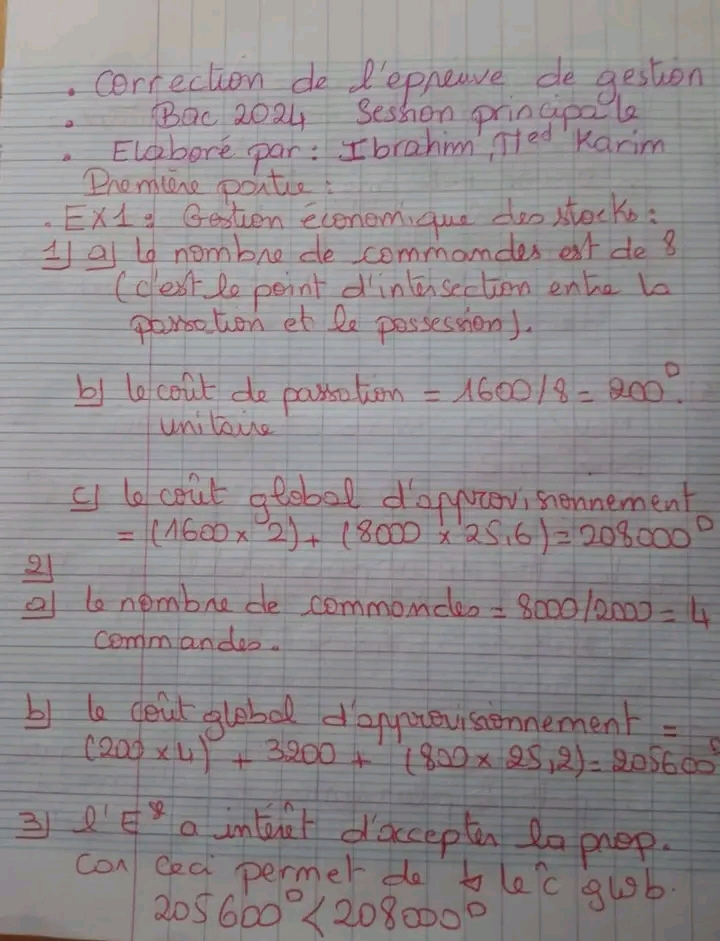 . Correction de l'épreuve de gestion
. Bac 2024 Session principale
. Elaboré par : Ibrahim, Med Karim
Première partie :
. EX1 : Gestion économique des stocks :
1) a) le nombre de commandes est de 8
(c'est le point d'intersection entre la
passation et le possession).
b) le coût de passation = 1600/8 = 200D.
unitaire
c) le coût global d'approvisionnement
= (1600 x 2) + (8000 x 25,6) = 208000D
2)
a) le nombre de commandes = 8000/2000 = 4
commandes.
b) le coût global d'approvisionnement =
(200 x 4) + 3200 + (800 x 25,2) = 205600D
3) l'Ese a intérêt d'accepter la prop.
Car ceci permet de ↳ le ĉ glob.
205600D < 208000D